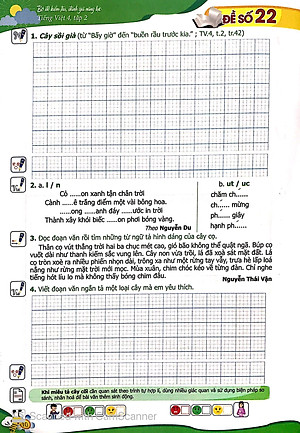 Bộ đề kiểm tra, đánh giá năng lực
Tiếng Việt 4, tập 2
ĐỀ SỐ 22
1. Cây sồi già (từ "Bấy giờ" đến "buồn rầu trước kia." ; TV.4, t.2, tr.42)
2. a. l / n
b. ut / uc
Cỏ ......on xanh tận chân trời
chăm ch......
Cành ......ê trắng điểm một vài bông hoa.
ch...... mừng
......ong ......anh đáy ......ước in trời
ph...... giây
Thành xây khói biếc ......on phơi bóng vàng.
hạnh ph......
Theo Nguyễn Du
3. Đọc đoạn văn rồi tìm những từ ngữ tả hình dáng của cây cọ.
Thân cọ vút thẳng trời hai ba chục mét cao, gió bão không thể quật ngã. Búp cọ
vuốt dài như thanh kiếm sắc vung lên. Cây non vừa trồi, lá đã xoà sát mặt đất. Lá
cọ tròn xoè ra nhiều phiến nhọn dài, trông xa như một rừng tay vẫy, trưa hè lấp loá
nắng như rừng mặt trời mới mọc. Mùa xuân, chim chóc kéo về từng đàn. Chỉ nghe
tiếng hót líu lo mà không thấy bóng chim đâu.
Nguyễn Thái Vận
4. Viết đoạn văn ngắn tả một loại cây mà em yêu thích.
Khi miêu tả cây cối cần quan sát theo trình tự hợp lí, dùng nhiều giác quan và sử dụng biện pháp so
sánh, nhân hoá để bài văn thêm sinh động.